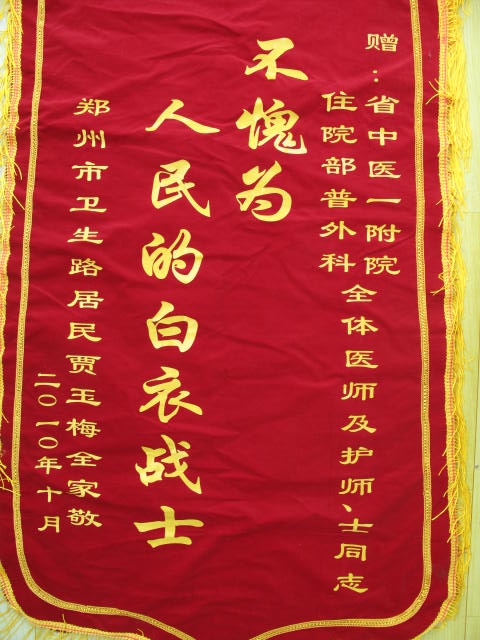 赠：省中医一附院
住院部普外科
全体医师及护师、士同志
不愧为
人民的白衣战士
郑州市卫生路居民贾玉梅全家敬
二〇一〇年十月